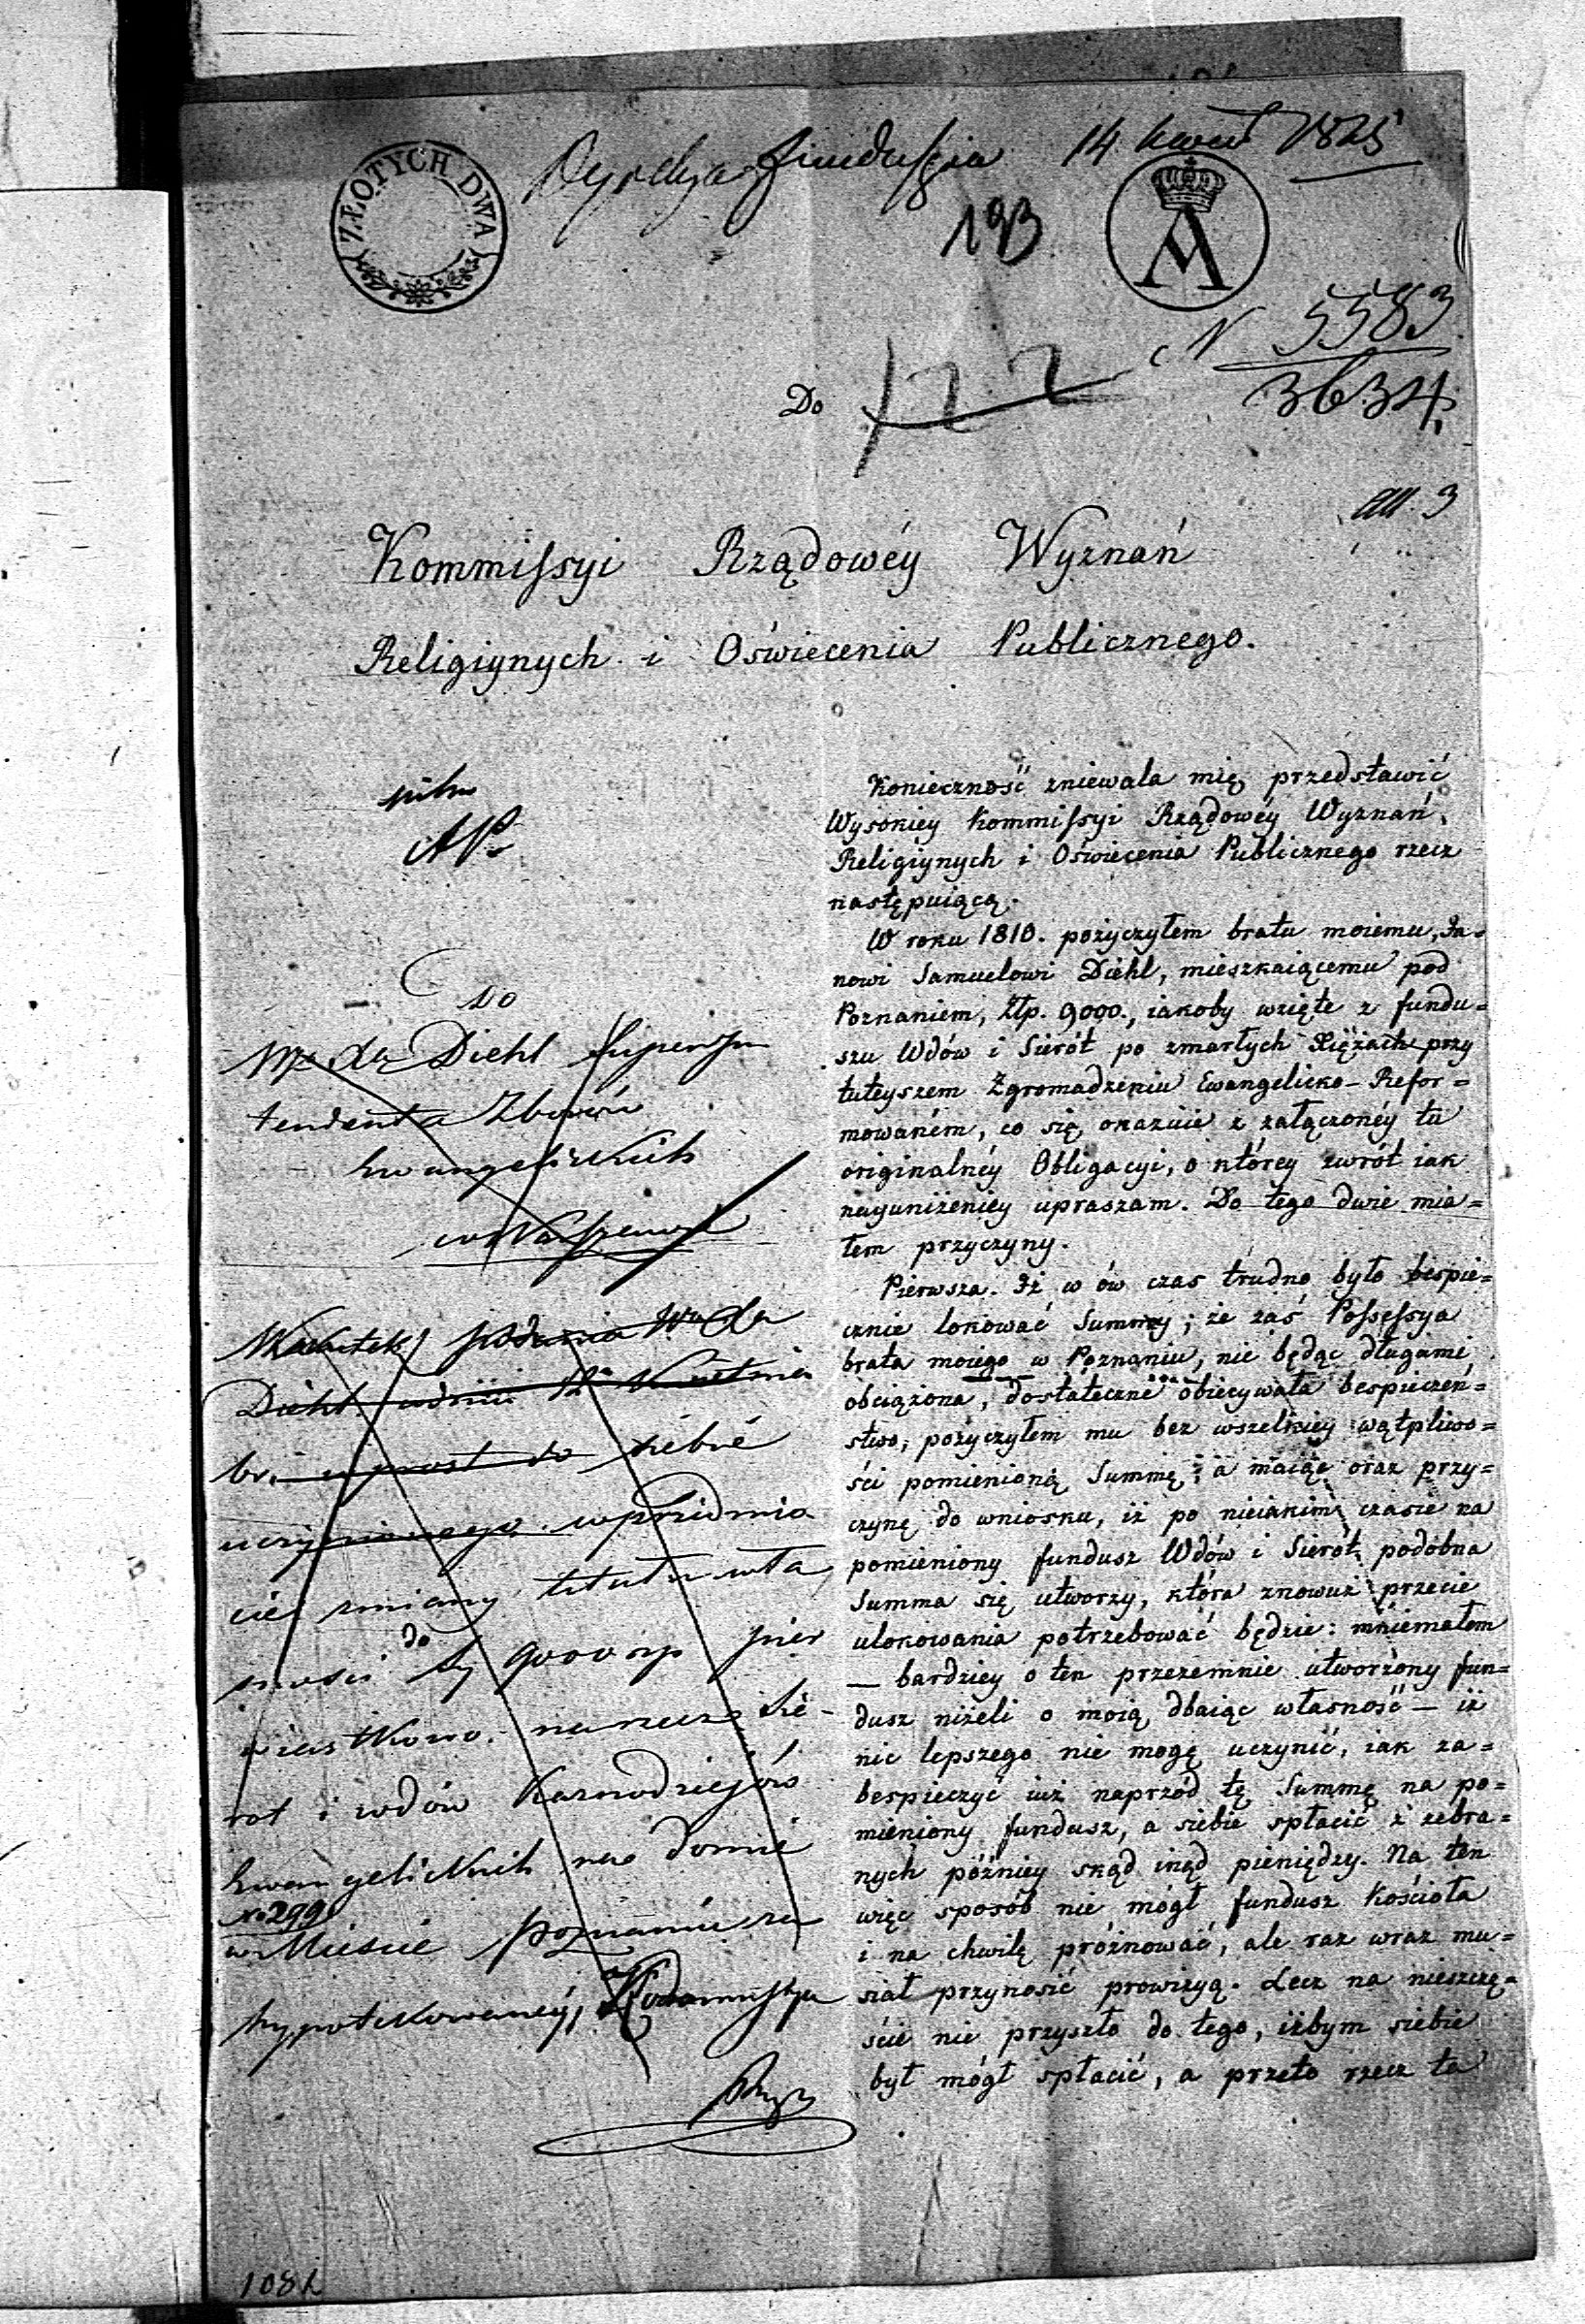 14 kwiet 1825
ZŁOTYCH DWA
193
A
N 5583
3634
Do
122
all. 3
Kommissyi Rządowéy Wyznań
Religiynych i Oświecenia Publicznego.
pilno
Do
Diehl Superin
tendenta Zborów
Ewangelickich
w Warszawie
podania
Diehl w dniu 12 Kwietnia
br. wprost do siebie
uczynionego
zmiany tytułu wła
do
sności Sy 9000 zp pier
wiastkowo na rzecz Sie-
rot i wdów Kaznodziejów
Ewangelickich na domie
No 299
w Mieście Poznaniu za
hypotekowanéy, Kommissya
Konieczność zniewala mię przedstawić
Wysokiey Kommissyi Rządowéy Wyznań,
Religiynych i Oświecenia Publicznego rzecz
następuiącą.
W roku 1810. pożyczyłem bratu moiemu, Ja=
nowi Samuelowi Diehl, mieszkaiącemu pod
Poznaniem, Złp. 9000., iakoby wzięte z fundu=
szu Wdów i Sierót po zmarłych Xiężach przy
tuteyszem Zgromadzeniu Ewangelicko-Refor=
mowaném, co się okazuie z załączonéy tu
originalnéy Obligacyi, o którey zwrót iak
nayuniżeniey upraszam. Do tego dwie mia=
łem przyczyny.
Pierwsza. Iż w ów czas trudno było bespie=
cznie lokować Summy; że zaś Possessya
brata moiego w Poznaniu, nie będąc długami
obciążona, dostateczne obiecywała bespieczeń=
stwo, pożyczyłem mu bez wszelkiey wątpliwo=
ści pomienioną Summę; a maiąc oraz przy=
czynę do wniosku, iż po nieiakim czasie na
pomieniony fundusz Wdów i Sierót podobna
Summa się utworzy, która znowuż przecie
ulokowania potrzebować będzie: mniemałem
— bardziey o ten przezemnie utworzony fun=
dusz niżeli o moią dbaiąc własność — iż
nic lepszego nie mogę uczynić, iak za=
bespieczyć iuż naprzód tę Summę na po=
mieniony fundusz, a siebie spłacić z zebra=
nych późniey skąd inąd pieniędzy. Na ten
więc sposób nie mógł fundusz Kościoła
i na chwilę próżnować, ale raz wraz mu=
siał przynosić prowizyą. Lecz na nieszczę=
ście nie przyszło do tego, iżbym siebie
był mógł spłacić, a przeto rzecz ta
1081